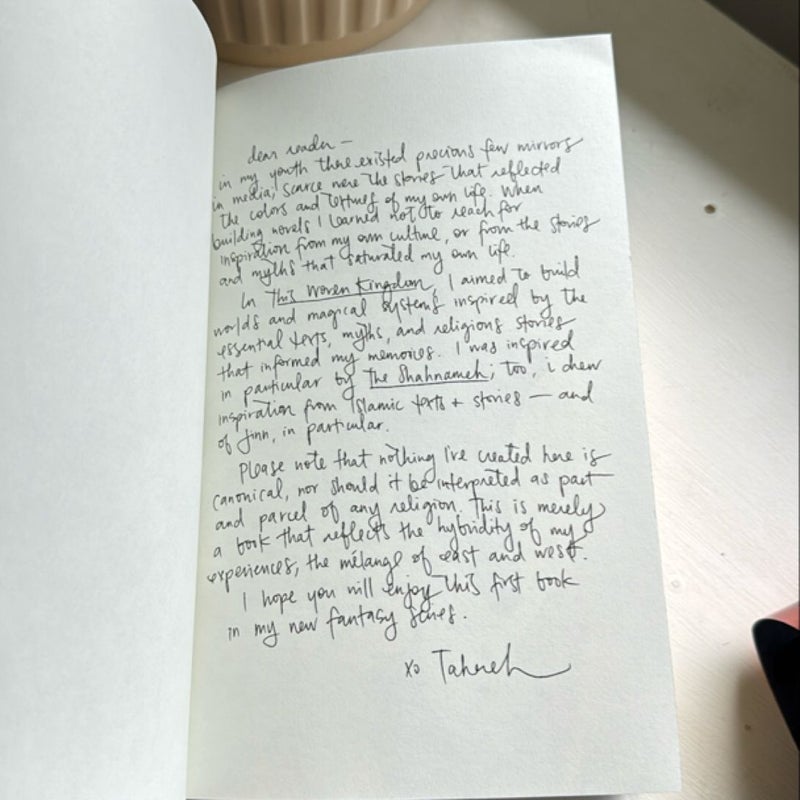 dear reader —
in my youth there existed precious few mirrors
in media; scarce were the stories that reflected
the colors and textures of my own life. When
building novels I learned not to reach for
inspiration from my own culture, or from the stories
and myths that saturated my own life.
In This Woven Kingdom, I aimed to build
worlds and magical systems inspired by the
essential texts, myths, and religious stories
that informed my memories. I was inspired
in particular by The Shahnameh; too, i drew
inspiration from Islamic texts + stories — and
of Jinn, in particular.
Please note that nothing I've created here is
canonical, nor should it be interpreted as part
and parcel of any religion. This is merely
a book that reflects the hybridity of my
experiences, the mélange of east and west.
I hope you will enjoy this first book
in my new fantasy series.
xo Tahereh